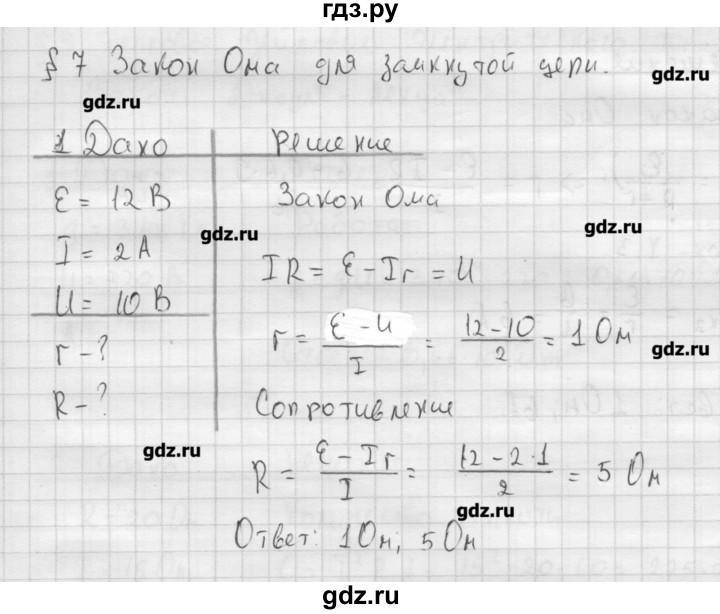 гдз.ру
§ 7 Закон Ома для замкнутой цепи.
gdz.ru
gdz.ru
1 Дано
ε = 12 В
I = 2 А
U = 10 В
r - ?
R - ?
Решение
Закон Ома
gdz.ru
gdz.ru
IR = ε - Ir = U
r = (ε - U)/I = (12 - 10)/2 = 1 Ом
gdz.ru
Сопротивление
gdz.ru
R = (ε - Ir)/I = (12 - 2·1)/2 = 5 Ом
gdz.ru
Ответ: 1 Ом; 5 Ом
гдз.ру